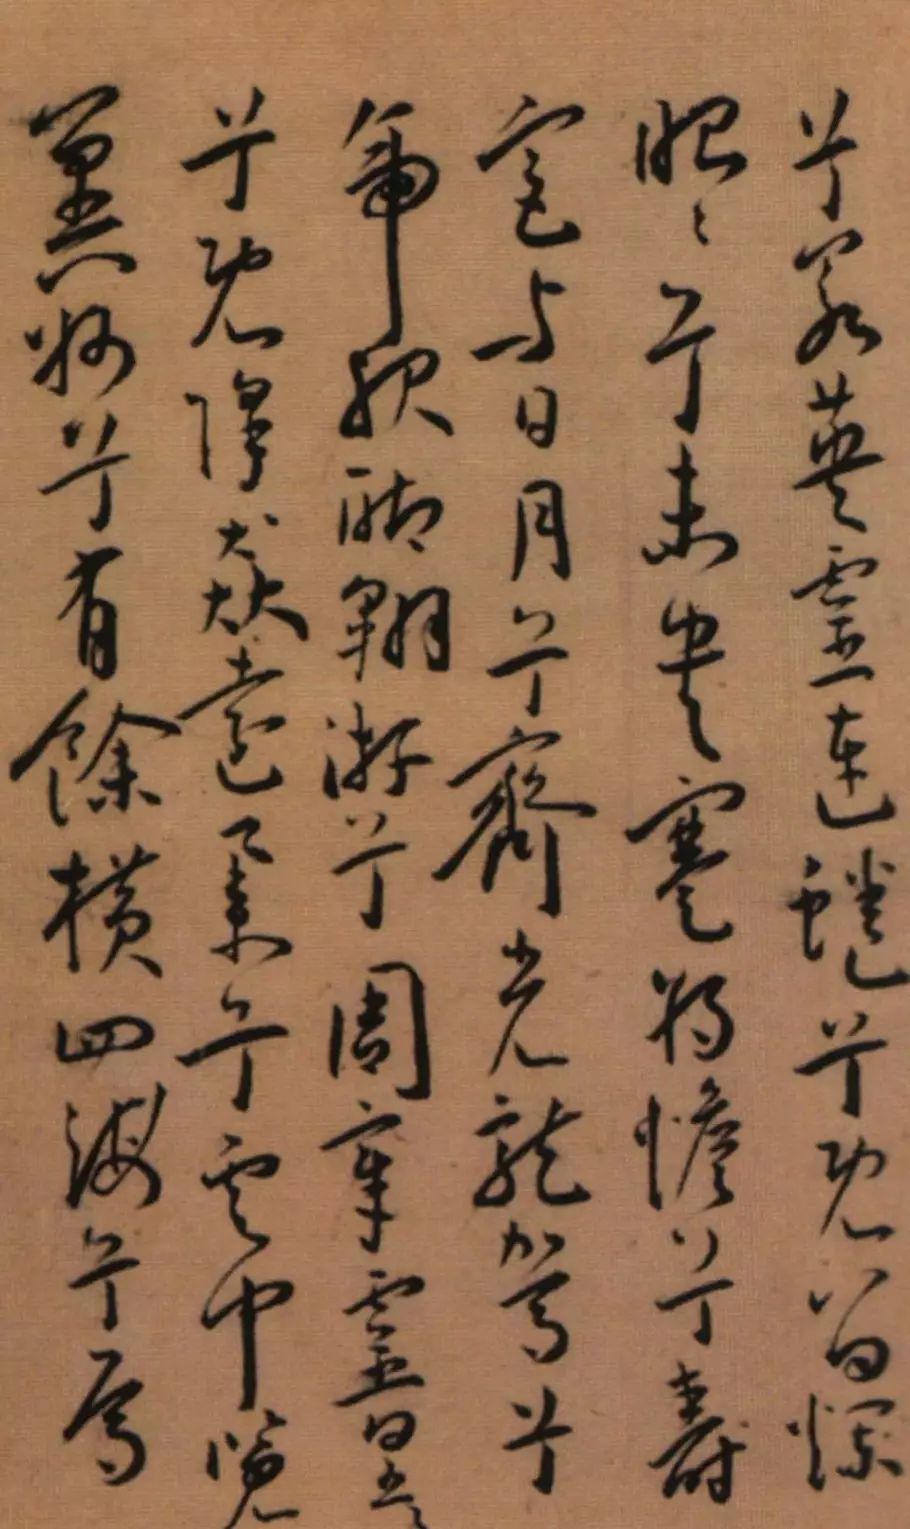 兮若英靈連蜷兮既留爛
昭〻兮未央蹇將憺兮壽
宮与日月兮齊光龍駕兮
帝服聊翱游兮周章靈皇〻
兮既降猋遠舉兮雲中覽
冀州兮有餘橫四海兮焉